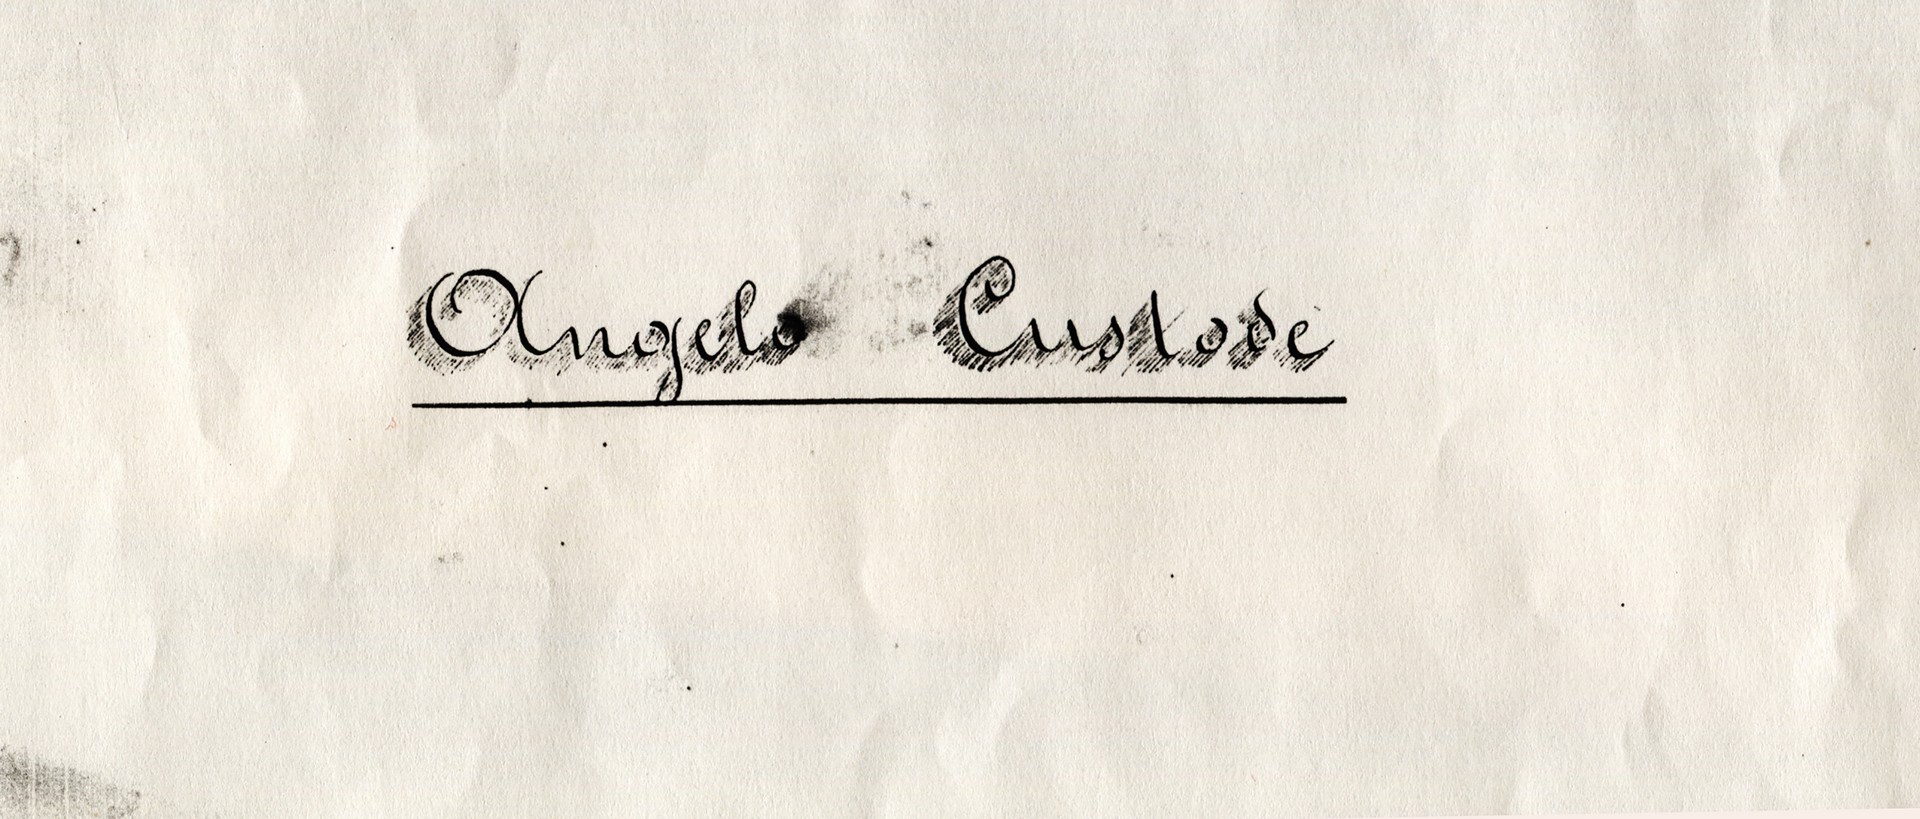 Angelo Custode